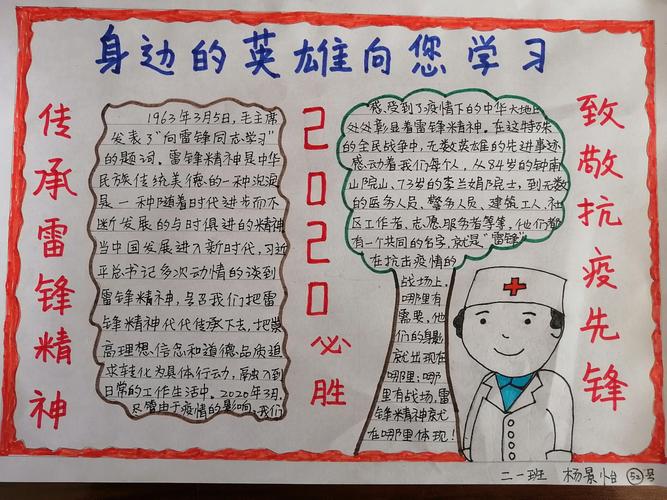 身边的英雄向您学习
传承雷锋精神
1963年3月5日,毛主席
发表了"向雷锋同志学习"
的题词。雷锋精神是中华
民族传统美德的一种沉淀
是一种随着时代进步而不
断发展的与时俱进的精神
当中国发展进入新时代,习近
平总书记多次动情的谈到
雷锋精神,号召我们把雷
锋精神代代传承下去,把崇
高理想、信念和道德品质追
求转化为具体行动,融入到
日常的工作生活中。2020年3月,
尽管由于疫情的影响,我们
2020必胜
感受到了疫情下的中华大地
处处彰显着雷锋精神。在这特殊
的全民战争中,无数英雄的先进事迹
感动着我们每个人,从84岁的钟南
山院山、73岁的李兰娟院士,到无数
的医务人员、警务人员、建筑工人、社
区工作者、志愿服务者等等,他们都
有一个共同的名字,就是"雷锋"
在抗击疫情的
战场上,
哪里有
需要,他
们的身影
就出现在
哪里;哪
里有战场,雷
锋精神就
在哪里体现!
致敬抗疫先锋
二一班 杨景怡 52号